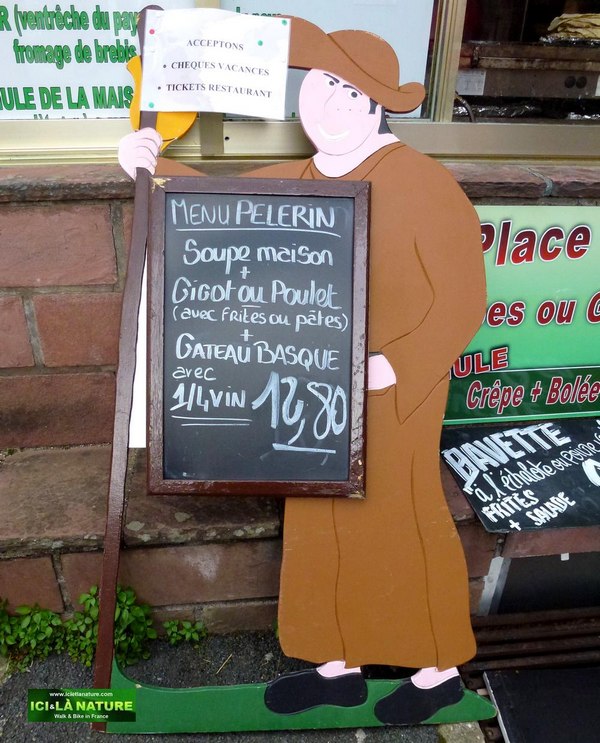 R (ventrêche du pay
fromage de brebis
ULE DE LA MAIS
ACCEPTONS
• CHEQUES VACANCES
• TICKETS RESTAURANT
MENU PELERIN
Soupe maison
+
Gigot ou Poulet
(avec frites ou pâtes)
+
GATEAU BASQUE
avec
1/4 VIN 12,80
Place
pes ou G
ULE
Crêpe + Bolée
BAVETTE
"à l'échalote ou poivre
FRITES
+ SALADE
www.icietlanature.com
ICI&LÀ NATURE
Walk & Bike in France